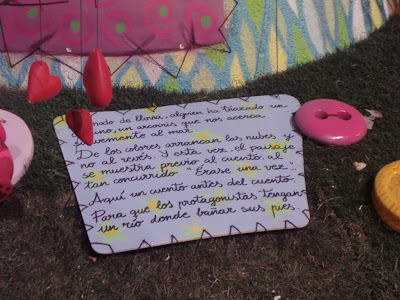 nado de lluvia, alguien ha trazado un
ino, un arcoiris que nos acerca
vemente al mar.
De los colores arrancan las nubes, y
no al revés. Y esta vez, el paisaje
se muestra previo al cuento, al
tan concurrido "Erase una vez".
Aquí un cuento antes del cuento.
Para que los protagonistas tengan
un río donde bañar sus pies.